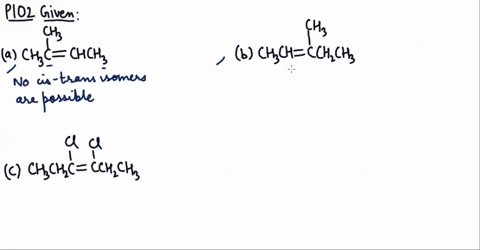 P102 Given:
CH₃
(a) CH₃C=CHCH₃
No cis-trans isomers
are possible
CH₃
(b) CH₃CH=CCH₂CH₃
Cl Cl
(c) CH₃CH₂C=CCH₂CH₃